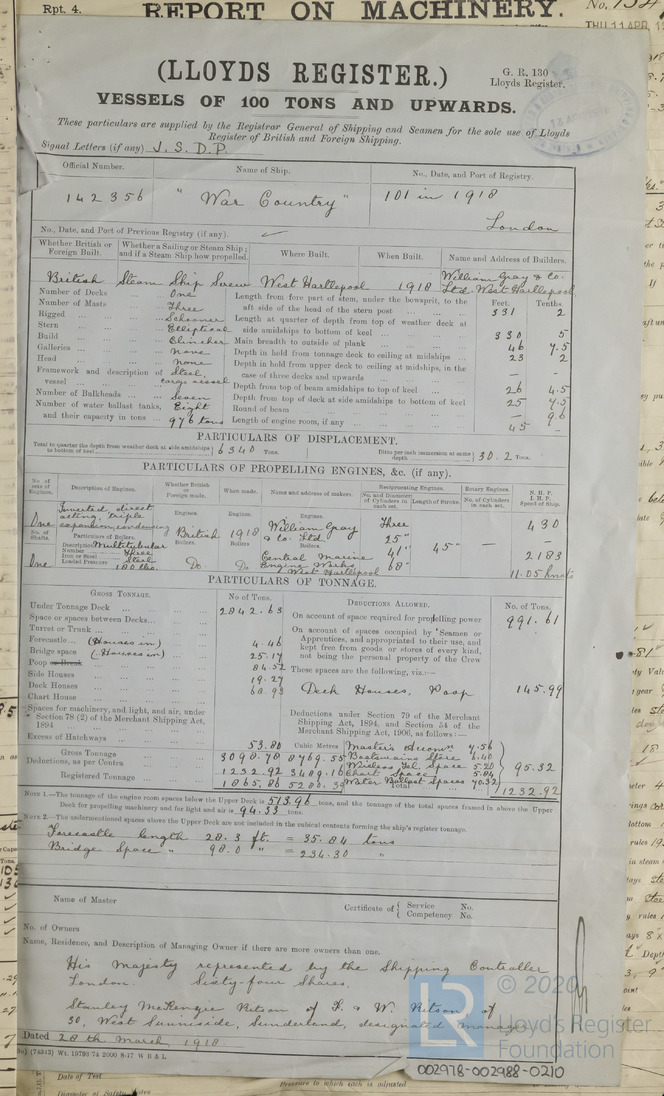 Rpt. 4.
REPORT ON MACHINERY.
No.
THU 11 APR
(LLOYDS REGISTER.)
G. R. 130
Lloyds Register.
VESSELS OF 100 TONS AND UPWARDS.
These particulars are supplied by the Registrar General of Shipping and Seamen for the sole use of Lloyds
Register of British and Foreign Shipping.
Signal Letters (if any) J. S. D. P.
Official Number. Name of Ship. No., Date, and Port of Registry.
142356 "War Country" 101 in 1918
London
No., Date, and Port of Previous Registry (if any).
Whether British or Foreign Built. Whether a Sailing or Steam Ship; and if a Steam Ship how propelled. Where Built. When Built. Name and Address of Builders.
British Steam Ship Screw West Hartlepool 1918 William Gray & Co. Ltd. West Hartlepool
Number of Decks One
Number of Masts Three
Rigged Schooner
Stern Elliptical
Build Clincher
Galleries None
Head None
Framework and description of vessel Steel, cargo vessel
Number of Bulkheads Seven
Number of water ballast tanks, Eight
and their capacity in tons 976 tons
Feet. Tenths.
Length from fore part of stem, under the bowsprit, to the
aft side of the head of the stern post 331 2
Length at quarter of depth from top of weather deck at
side amidships to bottom of keel 330 5
Main breadth to outside of plank 46 7.5
Depth in hold from tonnage deck to ceiling at midships 23 2
Depth in hold from upper deck to ceiling at midships, in the
case of three decks and upwards — —
Depth from top of beam amidships to top of keel 26 4.5
Depth from top of deck at side amidships to bottom of keel 25 7.5
Round of beam — 96
Length of engine room, if any 45 —
PARTICULARS OF DISPLACEMENT.
Total to quarter the depth from weather deck at side amidships to bottom of keel 6340 Tons. Ditto per inch immersion at same depth 30.2 Tons.
PARTICULARS OF PROPELLING ENGINES, &c. (if any).
No. of sets of Engines. Description of Engines. Whether British or Foreign made. When made. Name and address of makers. Reciprocating Engines. Rotary Engines. N. H. P. I. H. P. Speed of Ship.
No. and Diameter of Cylinders in each set. Length of Stroke. No. of Cylinders in each set.
Engines. Engines. Engines.
One Inverted direct acting triple expansion, condensing British 1918 William Gray & Co. Ltd. Three 25" 41" 68" 45" — 430
No. of Shafts. Particulars of Boilers. Boilers. Boilers Boilers.
One Description Multitubular
Number Three
Iron or Steel Steel
Loaded Pressure 180 lbs.
Do Do Central Marine Engine Works West Hartlepool
2183
11.05 knots
PARTICULARS OF TONNAGE.
GROSS TONNAGE. No. of Tons.
Under Tonnage Deck 2842.63
Space or spaces between Decks
Turret or Trunk
Forecastle (Houses in) 4.46
Bridge space (Houses in) 25.17
Poop or Break 84.52
Side Houses 19.27
Deck Houses 68.93
Chart House
Spaces for machinery, and light, and air, under
Section 78 (2) of the Merchant Shipping Act,
1894
Excess of Hatchways 53.80
Cubic Metres
Gross Tonnage 3098.78 8769.55
Deductions, as per Contra 1232.92 3489.16
Registered Tonnage 1865.86 5280.39
DEDUCTIONS ALLOWED. No. of Tons.
On account of space required for propelling power 991.61
On account of spaces occupied by Seamen or
Apprentices, and appropriated to their use, and
kept free from goods or stores of every kind,
not being the personal property of the Crew
These spaces are the following, viz.:—
Deck Houses, Poop 145.99
Deductions under Section 79 of the Merchant
Shipping Act, 1894, and Section 54 of the
Merchant Shipping Act, 1906, as follows:—
Master's Accomn. 7.56
Boatswains Store 6.40
Wireless Tel. Space 5.20
Chart Space 5.84
Water Ballast Spaces 70.32
95.32
Total 1232.92
NOTE 1.—The tonnage of the engine room spaces below the Upper Deck is 513.96 tons, and the tonnage of the total spaces framed in above the Upper
Deck for propelling machinery and for light and air is 94.33 tons.
NOTE 2.—The undermentioned spaces above the Upper Deck are not included in the cubical contents forming the ship's register tonnage.
Forecastle length 28.3 ft. = 35.84 tons
Bridge Space " 98.0 " = 234.30 "
Name of Master Certificate of { Service No. Competency No.
No. of Owners
Name, Residence, and Description of Managing Owner if there are more owners than one.
His Majesty represented by the Shipping Controller
London. Sixty-four Shares.
Stanley McKenzie Ritson of F. & W. Ritson of
30, West Sunniside, Sunderland, designated manager
Dated 28th March, 1918
(74343) Wt. 19793/74 2000 8-17 W B & L
© 2020
LR
Lloyd's Register
Foundation
Date of Test
Pressure to which each is adjusted
002978-002988-0210